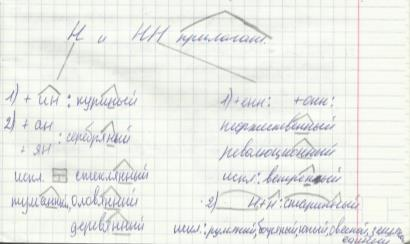 Н и НН прилагат.
1) + ин : куриный
2) + ан
+ ян : серебряный
искл. стеклянный
оловянный
деревянный
1) + енн : + онн :
торжественный
революционный
искл : ветреный
2) Н+Н : старинный
искл : румяный,